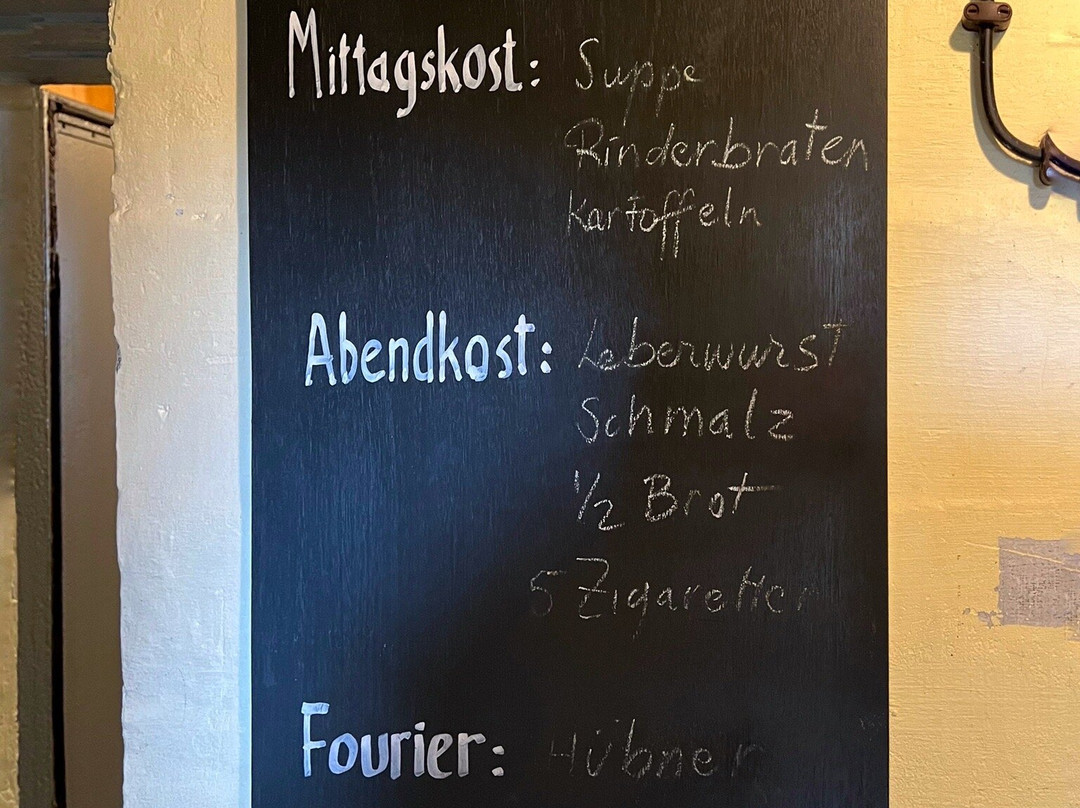 Mittagskost: Suppe
Rinderbraten
Kartoffeln
Abendkost: Leberwurst
Schmalz
1/2 Brot
5 Zigaretten
Fourier: Hübner